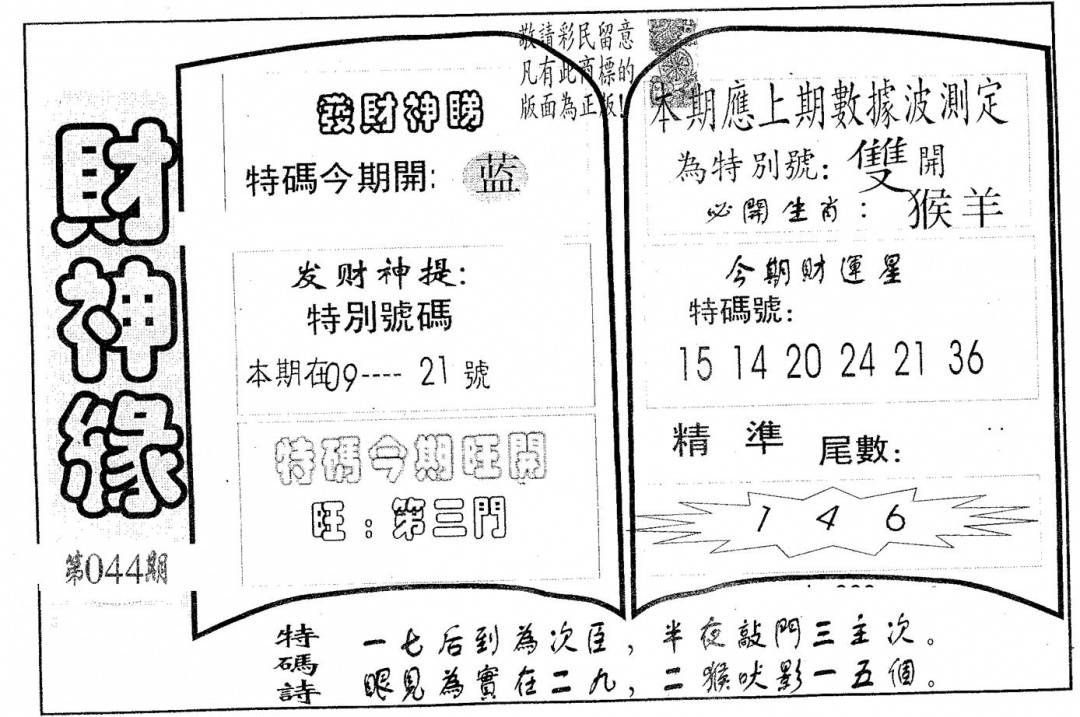 財神緣
第044期
敬請彩民留意
凡有此商標的
版面為正版!
發財神睇
特碼今期開: 蓝
发财神提:
特別號碼
本期在09----21號
特碼今期旺開
旺:第三門
本期應上期數據波測定
為特別號: 雙開
必開生肖: 猴羊
今期財運星
特碼號:
15 14 20 24 21 36
精準 尾數:
1 4 6
特碼詩
一七后到為次臣,半夜敲門三主次。
眼見為實在二九,二猴吠影一五個。